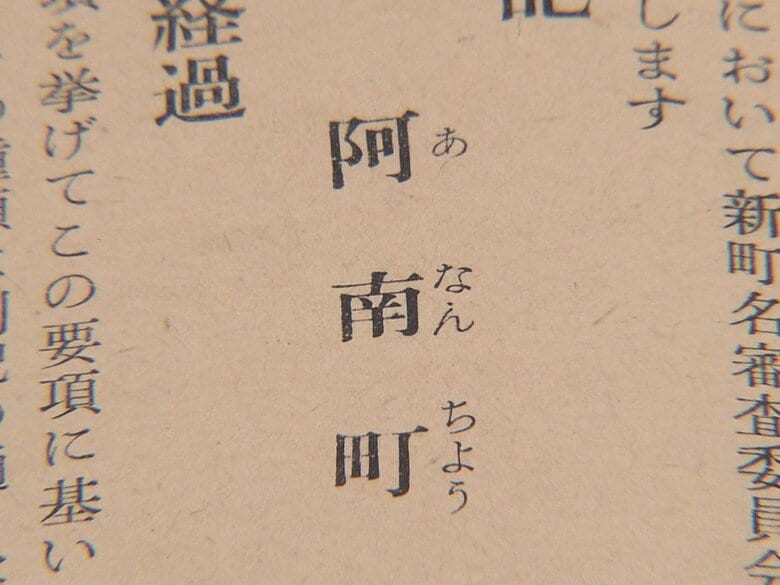 において新町名審査委員会
します
記
阿南町
あなんちよう
経過
を挙げてこの要項に基い